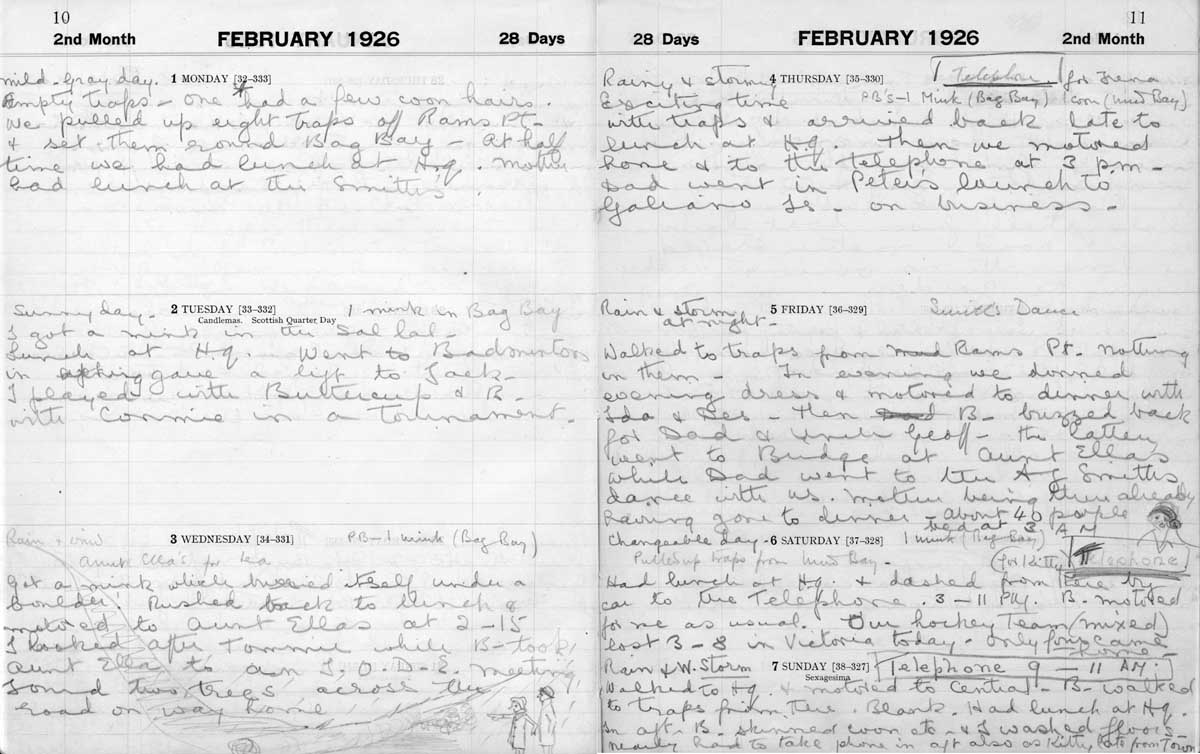 10
2nd Month FEBRUARY 1926 28 Days
mild gray day. 1 MONDAY [32-333]
Empty traps - one had a few coon hairs.
We pulled up eight traps off Rams Pt -
& set them round Bag Bay - At half
time we had lunch at Hq. Mother
had lunch at the Smiths.
Sunny day. 2 TUESDAY [33-332] 1 mink in Bag Bay
Candlemas. Scottish Quarter Day
I got a mink in the Sal lal -
Lunch at Hq. Went to Badminton
in gave a lift to Jack -
I played with Buttercup & B -
with Connie in a Tournament.
Rain & wind 3 WEDNESDAY [34-331] PB - 1 mink (Bag Bay)
Aunt Ella's for tea
Got a mink which buried itself under a
boulder. Rushed back to lunch &
motored to Aunt Ellas at 2-15
I looked after Tommie while B - took
Aunt Ella to an I.O.D.E. meeting
Found two trees across the
road on way home!
11
28 Days FEBRUARY 1926 2nd Month
Rainy & stormy 4 THURSDAY [35-330] Telephone for Irena
Exciting time PB'S - 1 Mink (Bag Bay) 1 coon (Mud Bay)
with traps & arrived back late to
lunch at Hq. Then we motored
home & to the telephone at 3 pm -
Dad went in Peter's launch to
Galiano Is - on business -
Rain & storm 5 FRIDAY [36-329] Smith's Dance
at night -
Walked to traps from Rams Pt. nothing
in them - In evening we donned
evening dress & motored to dinner with
Ida & Des - then B - buzzed back
for Dad & Uncle Geoff - the latter
went to Bridge at Aunt Ellas
while Dad went to the A G Smiths
dance with us. Mother being there already
having gone to dinner - about 40 people
bed at 3 AM
Changeable day - 6 SATURDAY [37-328] 1 mink (Bag Bay)
Pulled up traps from Mud Bay - (for Kitty) Telephone
Had lunch at Hq. & dashed from there by
car to the Telephone. 3-11 PM. B. motored
for me as usual. Our hockey team (mixed)
lost 3-8 in Victoria today - only four came
home -
Rain & W. Storm 7 SUNDAY [38-327] Telephone 9-11 AM.
Sexagesima
Walked to Hq. & motored to Central - B - walked
to traps from there. Blank. Had lunch at Hq.
In aft. B. skinned coon etc - & I washed floors -
nearly had to take phone in aft also as Kitty late from Town